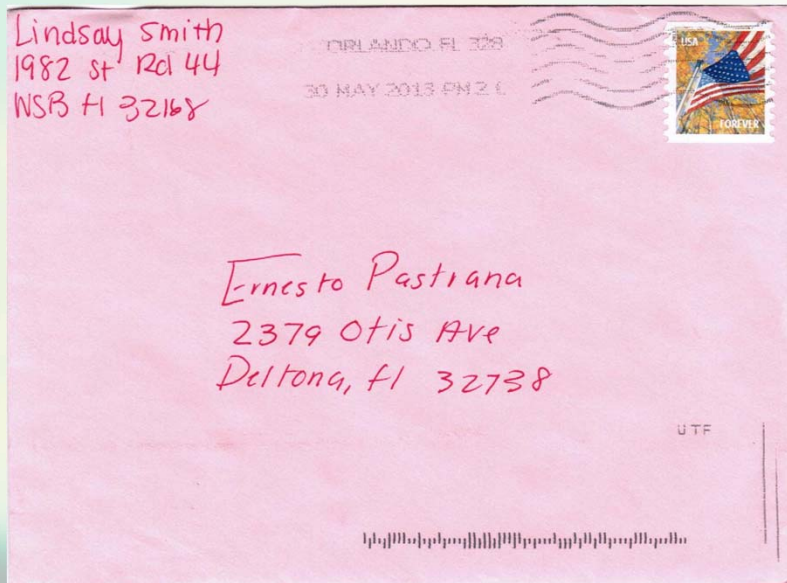 Lindsay Smith
1982 St Rd 44
NSB Fl 32168
ORLANDO FL 328
30 MAY 2013 PM 2
USA
FOREVER
Ernesto Pastrana
2379 Otis Ave
Deltona, fl 32738
UTF